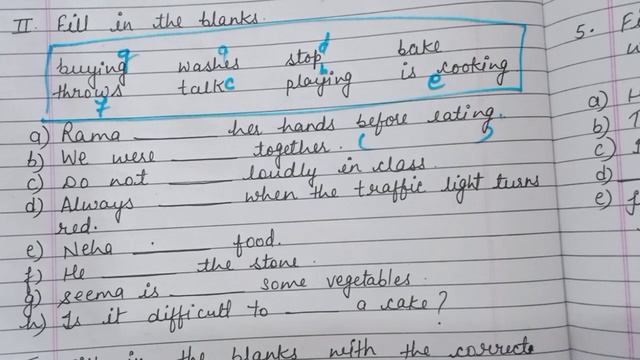 II. Fill in the blanks.
g a d
buying washes stop bake
b
throws talk c playing is cooking
7 e
a) Rama ______ her hands before eating.
b) We were ______ together.
c) Do not ______ loudly in class.
d) Always ______ when the traffic light turns
red.
e) Neha ______ food.
f) He ______ the stone.
g) Seema is ______ some vegetables.
h) Is it difficult to ______ a cake?
in the blanks with the correct
5. Fi
a)
b)
c)
d)
e)